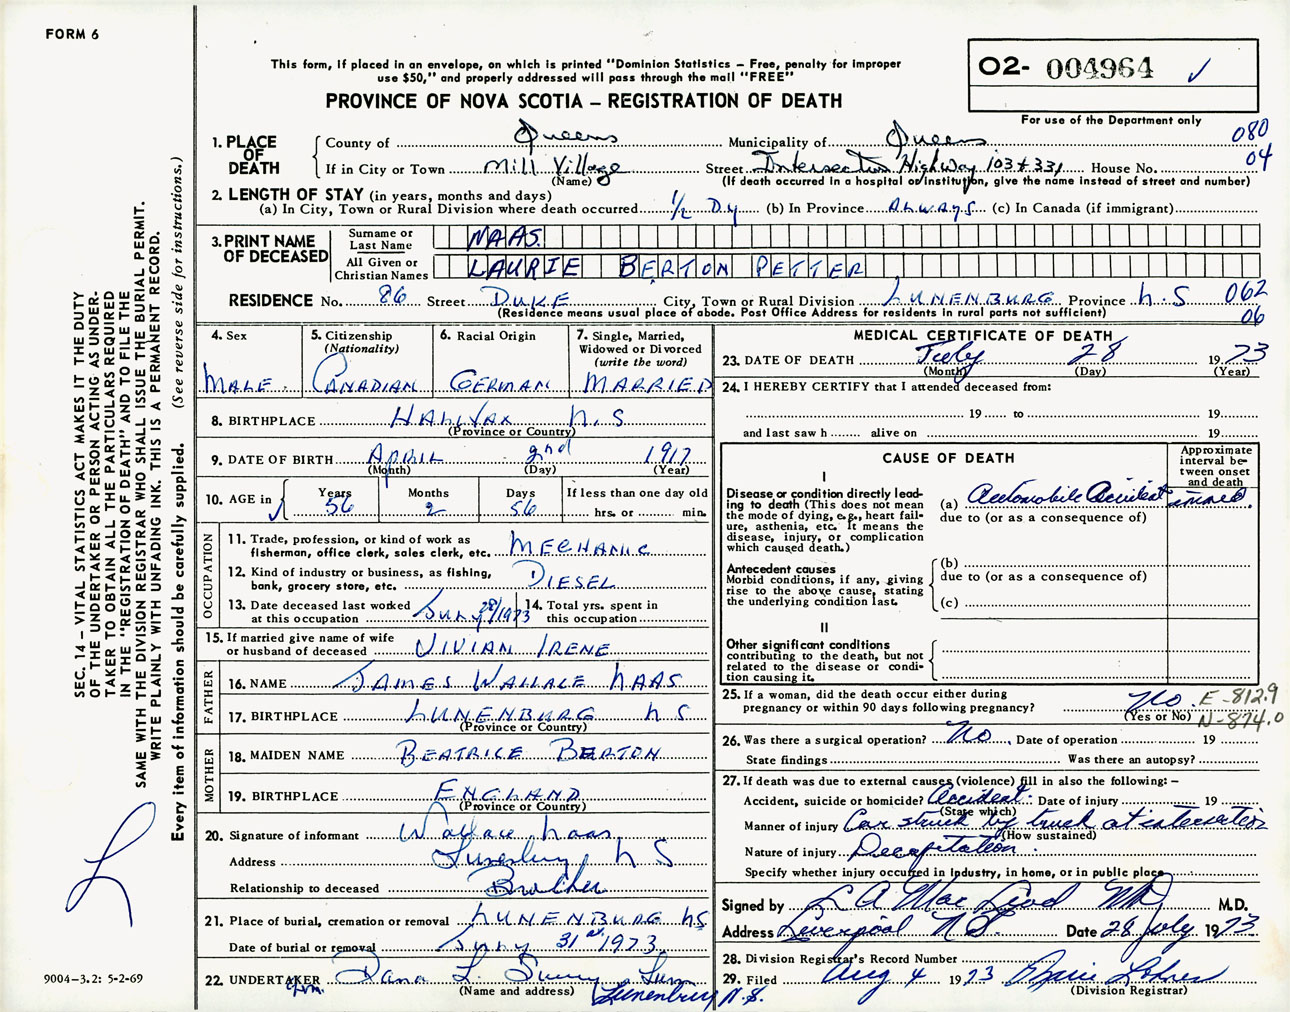 FORM 6
This form, if placed in an envelope, on which is printed "Dominion Statistics – Free, penalty for improper
use $50," and properly addressed will pass through the mail "FREE"
PROVINCE OF NOVA SCOTIA – REGISTRATION OF DEATH
O2- 004964 ✓
For use of the Department only
080
04
1. PLACE OF DEATH
County of Queens Municipality of Queens
If in City or Town Mill Village (Name) Street Intersection Highway 103 + 331 House No.
(If death occurred in a hospital or institution, give the name instead of street and number)
2. LENGTH OF STAY (in years, months and days)
(a) In City, Town or Rural Division where death occurred 1/2 Dy (b) In Province ALWAYS (c) In Canada (if immigrant)
3. PRINT NAME OF DECEASED
Surname or Last Name NAAS
All Given or Christian Names LAURIE BERTON PETTER
RESIDENCE No. 86 Street DUKE City, Town or Rural Division LUNENBURG Province N.S 062
06
(Residence means usual place of abode. Post Office Address for residents in rural parts not sufficient)
4. Sex
MALE
5. Citizenship (Nationality)
CANADIAN
6. Racial Origin
GERMAN
7. Single, Married, Widowed or Divorced (write the word)
MARRIED
8. BIRTHPLACE HALIFAX N.S
(Province or Country)
9. DATE OF BIRTH APRIL 2nd 1917
(Month) (Day) (Year)
10. AGE in Years 56 Months 2 Days 56 If less than one day old hrs. or min.
OCCUPATION
11. Trade, profession, or kind of work as fisherman, office clerk, sales clerk, etc. MECHANIC
12. Kind of industry or business, as fishing, bank, grocery store, etc. DIESEL
13. Date deceased last worked at this occupation 28/1973 14. Total yrs. spent in this occupation
15. If married give name of wife or husband of deceased VIVIAN IRENE
FATHER
16. NAME JAMES WALLACE NAAS
17. BIRTHPLACE LUNENBURG N S
(Province or Country)
MOTHER
18. MAIDEN NAME BEATRICE BERTON
19. BIRTHPLACE ENGLAND
(Province or Country)
20. Signature of informant Wallace Naas
Address Lunenburg, N S
Relationship to deceased Brother
21. Place of burial, cremation or removal LUNENBURG NS
Date of burial or removal 31st 1973
22. UNDERTAKER Dana L. Sweeny
(Name and address) Lunenburg N.S.
MEDICAL CERTIFICATE OF DEATH
23. DATE OF DEATH July 28 1973
(Month) (Day) (Year)
24. I HEREBY CERTIFY that I attended deceased from:
19 to 19
and last saw h alive on 19
CAUSE OF DEATH
Approximate interval between onset and death
I
Disease or condition directly leading to death (This does not mean the mode of dying, e.g., heart failure, asthenia, etc. It means the disease, injury, or complication which caused death.)
(a) Automobile Accident immed.
due to (or as a consequence of)
Antecedent causes
Morbid conditions, if any, giving rise to the above cause, stating the underlying condition last.
(b)
due to (or as a consequence of)
(c)
II
Other significant conditions
contributing to the death, but not related to the disease or condition causing it.
25. If a woman, did the death occur either during pregnancy or within 90 days following pregnancy? No.
(Yes or No)
E-812.9
N-874.0
26. Was there a surgical operation? No Date of operation 19
State findings Was there an autopsy?
27. If death was due to external causes (violence) fill in also the following:–
Accident, suicide or homicide? Accident. Date of injury 19
(State which)
Manner of injury Car struck by truck at intersection
(How sustained)
Nature of injury Decapitation.
Specify whether injury occurred in industry, in home, or in public place
Signed by L A MacLeod MD M.D.
Address Liverpool N.S. Date 28 July 1973
28. Division Registrar's Record Number
29. Filed Aug 4 1973
(Division Registrar)
SEC. 14 – VITAL STATISTICS ACT MAKES IT THE DUTY
OF THE UNDERTAKER OR PERSON ACTING AS UNDER-
TAKER TO OBTAIN ALL THE PARTICULARS REQUIRED
IN THE "REGISTRATION OF DEATH" AND TO FILE THE
SAME WITH THE DIVISION REGISTRAR WHO SHALL ISSUE THE BURIAL PERMIT.
WRITE PLAINLY WITH UNFADING INK. THIS IS A PERMANENT RECORD.
Every item of information should be carefully supplied. (See reverse side for instructions.)
9004–3.2: 5-2-69